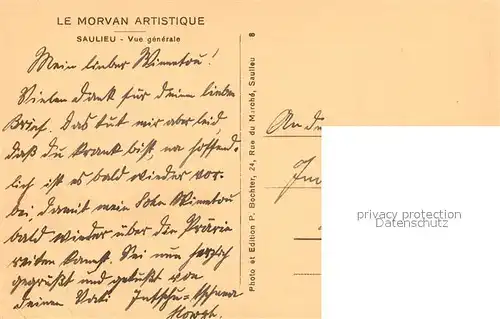 LE MORVAN ARTISTIQUE
SAULIEU - Vue générale
Mein lieber Winnetou!
Vielen Dank für deinen lieben
Brief. Das tut mir aber leid,
daß du krank bist, na hoffent-
lich ist es bald wieder vor-
bei, damit mein Sohn Winnetou
bald wieder über die Prärie
reiten kannst. Sei nun herzlich
gegrüßt und geküßt von
deinem Vati Intschu-tschuna
Photo et Edition P. Bochter, 24, Rue du Marché, Saulieu
8
An de
privacy protection
www.oldthing.de